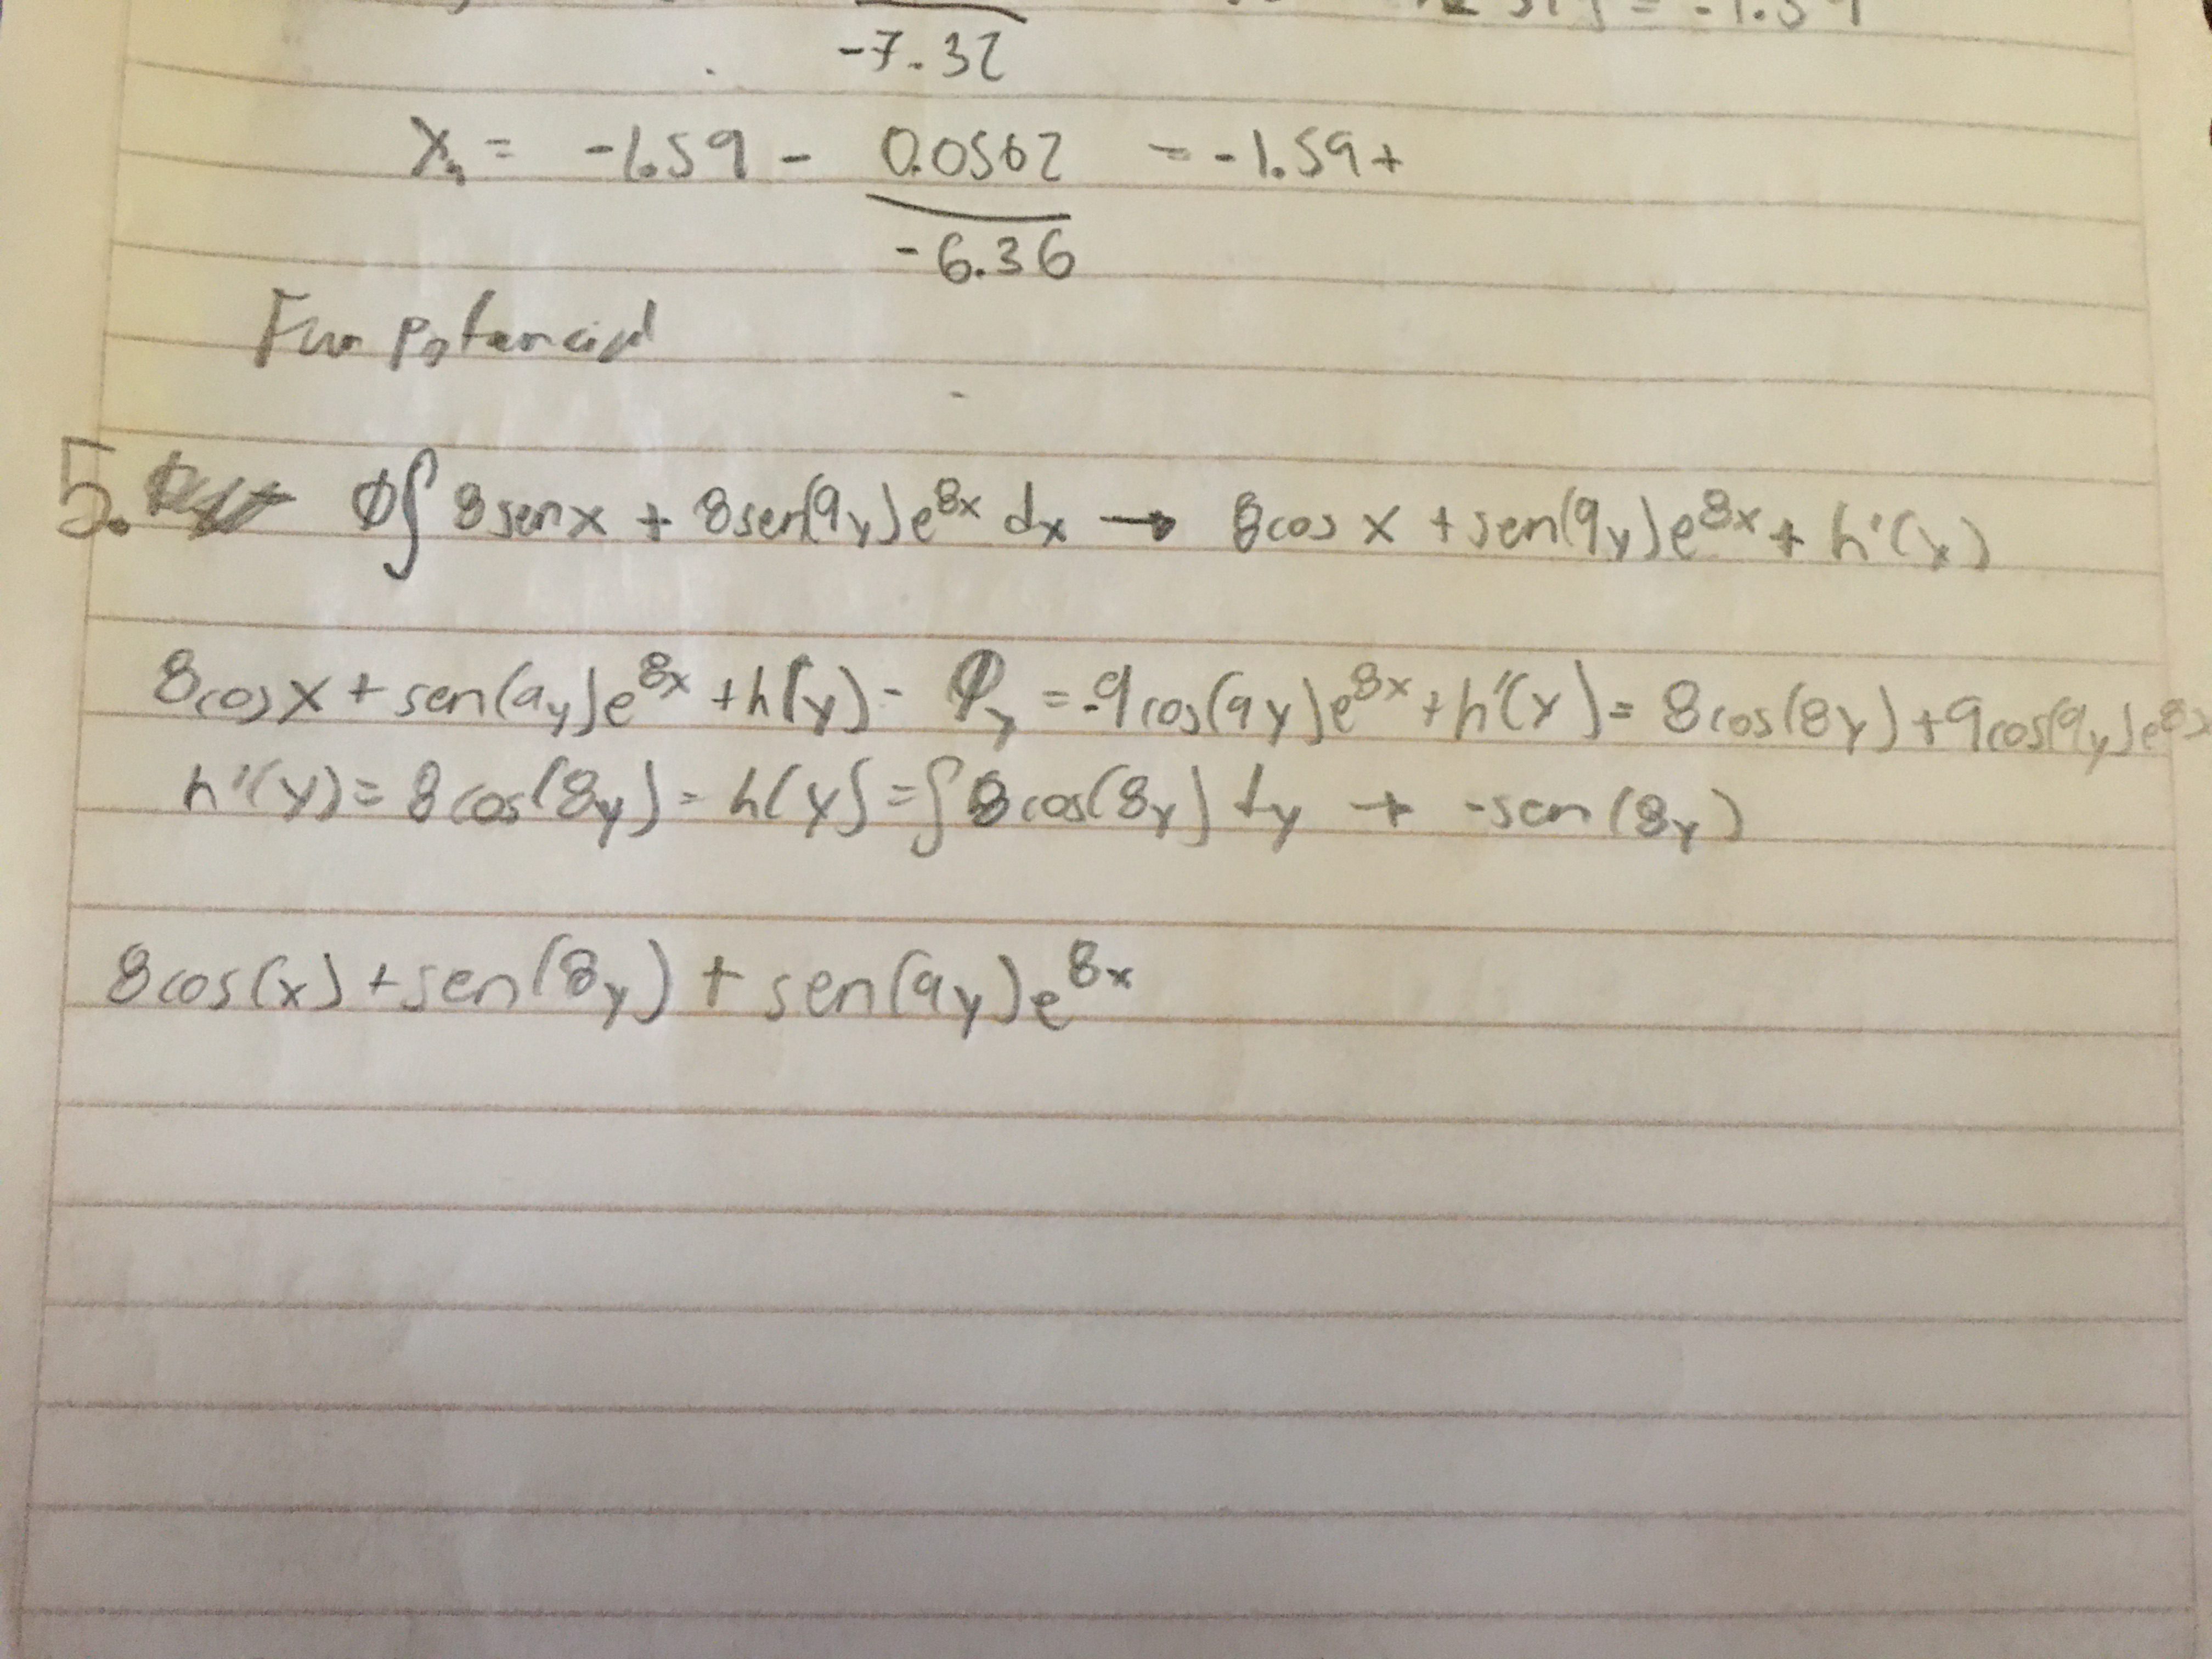 -7.32
X₄ = -1.59 - 0.0562 = -1.59+
-6.36
5. φ∫ 8senx + 8sen(9y)e^8x dx → 8cos x + sen(9y)e^8x + h'(x)
8cosx + sen(9y)e^8x + h(y) - φy = 9cos(9y)e^8x + h'(x) = 8cos(8y) + 9cos(9y)e^8x
h'(y) = 8cos(8y) = h(y) = ∫8cos(8y) dy + -sen(8y)
8cos(x) + sen(8y) + sen(9y)e^8x